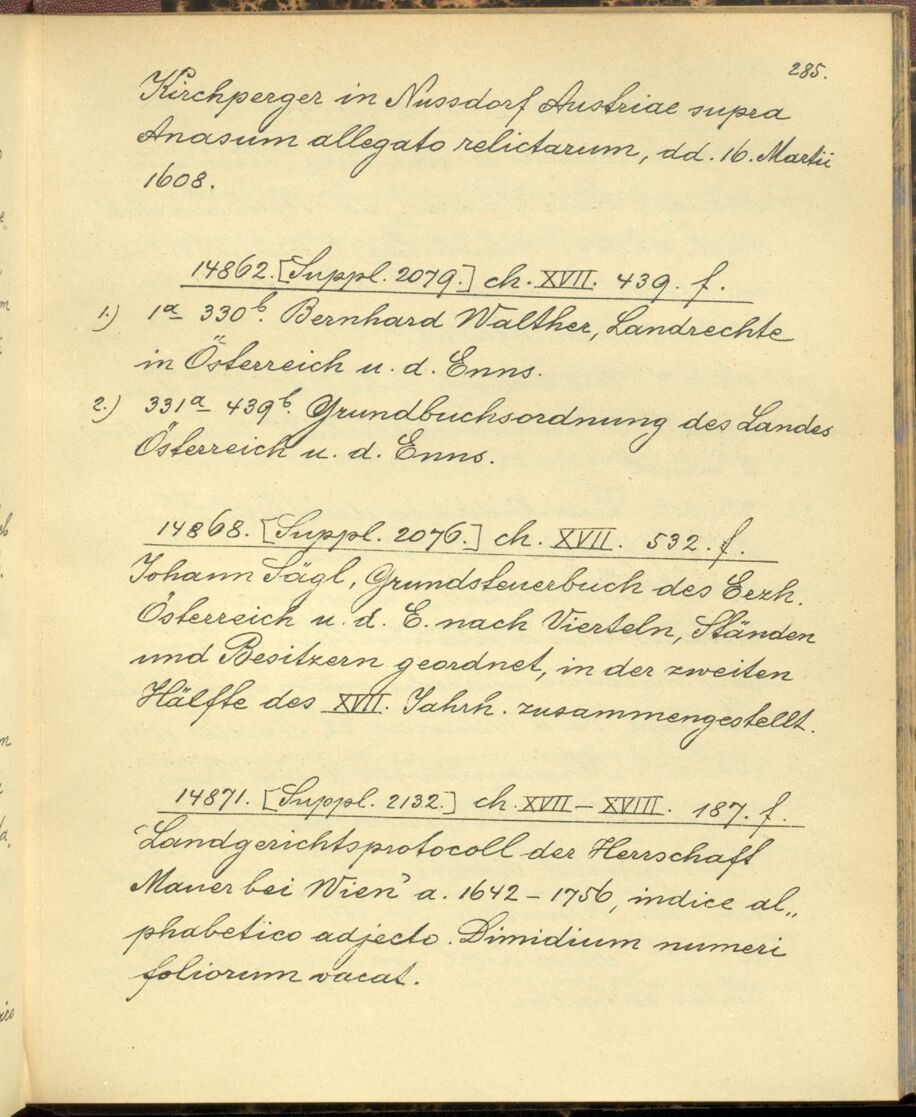 285.
Kirchperger in Nussdorf Austriae supra
Anasum allegato relictarum, dd. 16. Martii
1608.
14862. [Suppl. 2079.] ch. XVII. 439. f.
1.) 1a– 330b. Bernhard Walther, Landrechte
in Österreich u. d. Enns.
2.) 331a– 439b. Grundbuchsordnung des Landes
Österreich u. d. Enns.
14868. [Suppl. 2076.] ch. XVII. 532. f.
Johann Sägl, Grundsteuerbuch des Erzh.
Österreich u. d. E. nach Vierteln, Ständen
und Besitzern geordnet, in der zweiten
Hälfte des XVII. Jahrh. zusammengestellt.
14871. [Suppl. 2132.] ch. XVII – XVIII. 187. f.
‘Landgerichtsprotocoll der Herrschaft
Mauer bei Wien’ a. 1642 – 1756, indice al„
phabetico adjecto. Dimidium numeri
foliorum vacat.